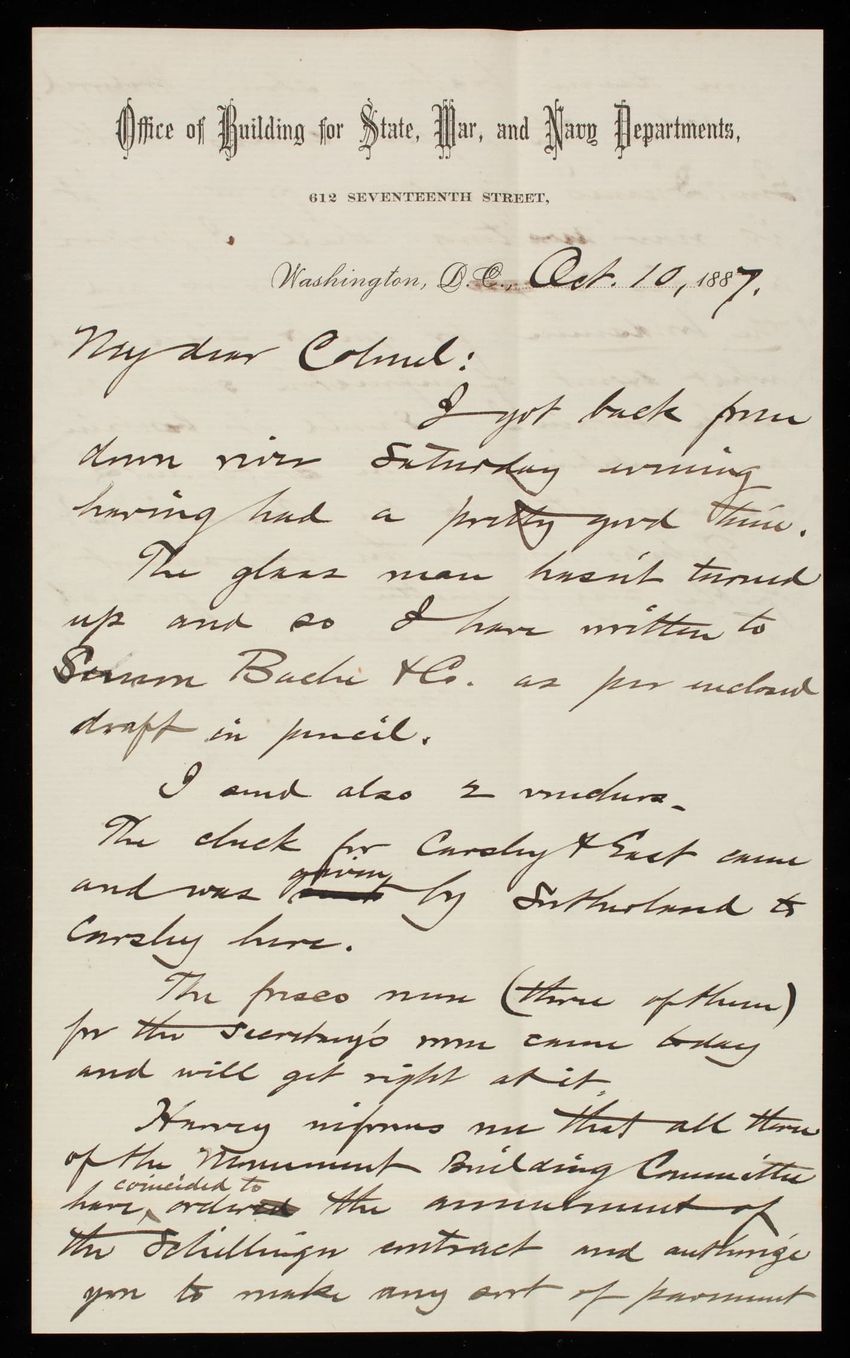 Office of Building for State, War, and Navy Departments,
612 SEVENTEENTH STREET,
Washington, D.C., Oct. 10, 1887.
My dear Colonel:
I got back from
down river Saturday evening
having had a pretty good time.
The glass man hasn't turned
up and so I have written to
Semon Bache & Co. as per enclosed
draft in pencil.
I send also 2 vouchers.
The check for Carsley & East came
and was given by Sutherland to
Carsley here.
The fresco men (three of them)
for the Secretary's room came today
and will get right at it.
Harvey informs me that all three
of the Monument Building Committee
have coincided to order the annulment of
the Schillinger contract and authorize
you to make any sort of pavement